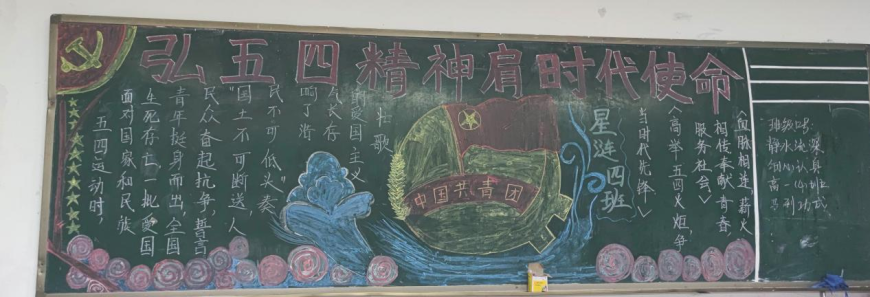 弘五四精神肩时代使命
五四运动时，
面对国家和民族
生死存亡一批爱国
青年挺身而出，全国
民众奋起抗争，誓言
"国土不可断送，人
民不可低头"奏
响了浩
气长存
的爱国主义
壮歌
中国共青团
星涟四班
当时代先锋》
《高举五四火炬，争
服务社会》
相传奉献青春
《血脉相连，薪火